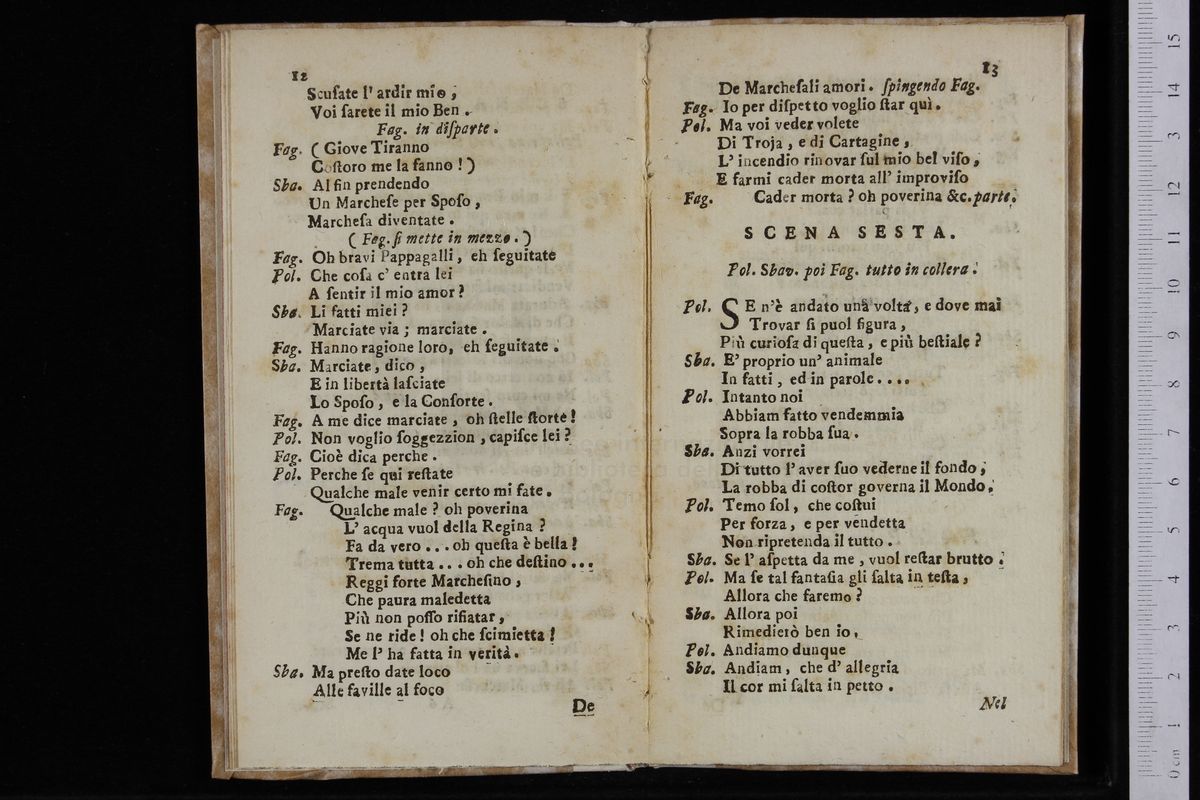 12
Scuſate l' ardir mio ;
Voi ſarete il mio Ben .
Fag. in diſparte .
Fag. ( Giove Tiranno
Coſtoro me la fanno ! )
Sba. Al fin prendendo
Un Marcheſe per Spoſo ,
Marcheſa diventate .
( Fag. ſi mette in mezzo . )
Fag. Oh bravi Pappagalli , eh ſeguitate
Pol. Che coſa c' entra lei
A ſentir il mio amor ?
Sba. Li fatti miei ?
Marciate via ; marciate .
Fag. Hanno ragione loro, eh ſeguitate .
Sba. Marciate , dico ,
E in libertà laſciate
Lo Spoſo , e la Conſorte .
Fag. A me dice marciate , oh ſtelle ſtorte !
Pol. Non voglio ſoggezzion , capiſce lei ?
Fag. Cioè dica perche .
Pol. Perche ſe qui reſtate
Qualche male venir certo mi fate .
Fag. Qualche male ? oh poverina
L' acqua vuol della Regina ?
Fa da vero . . . oh queſta è bella !
Trema tutta . . . oh che deſtino . . .
Reggi forte Marcheſino ,
Che paura maledetta
Più non poſſo rifiatar ,
Se ne ride ! oh che ſcimietta !
Me l' ha fatta in verità .
Sba. Ma preſto date loco
Alle faville al foco
De
13
De Marcheſali amori . ſpingendo Fag.
Fag. Io per diſpetto voglio ſtar quì .
Pol. Ma voi veder volete
Di Troja , e di Cartagine ,
L' incendio rinovar ſul mio bel viſo ,
E farmi cader morta all' improviſo
Fag. Cader morta ? oh poverina &c. parte .
SCENA SESTA.
Pol. Sbav. poi Fag. tutto in collera .
Pol. SE n'è andato una volta , e dove mai
Trovar ſi puol figura ,
Più curioſa di queſta , e più beſtiale ?
Sba. E' proprio un' animale
In fatti , ed in parole . . . .
Pol. Intanto noi
Abbiam fatto vendemmia
Sopra la robba ſua .
Sba. Anzi vorrei
Di tutto l' aver ſuo vederne il fondo ;
La robba di coſtor governa il Mondo .
Pol. Temo ſol , che coſtui
Per forza , e per vendetta
Non ripretenda il tutto .
Sba. Se l' aſpetta da me , vuol reſtar brutto .
Pol. Ma ſe tal fantaſia gli ſalta in teſta ,
Allora che faremo ?
Sba. Allora poi
Rimedierò ben io ,
Pol. Andiamo dunque
Sba. Andiam , che d' allegria
Il cor mi ſalta in petto .
Nel
0 cm 1 2 3 4 5 6 7 8 9 10 11 12 13 14 15